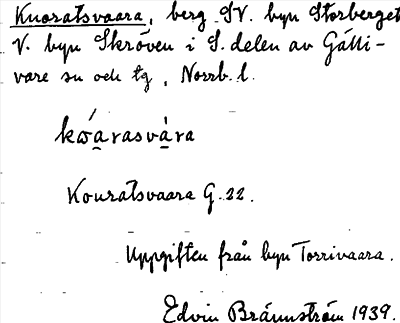 Kuoratsvaara, berg SV. byn Storberget
V. byn Skröven i S. delen av Gälli-
vare sn och tg, Norrb. l.
kώa̱rasvà̱ra
Kouratsvaara G. 22.
Uppgiften från byn Torrivaara.
Edvin Brännström 1939.